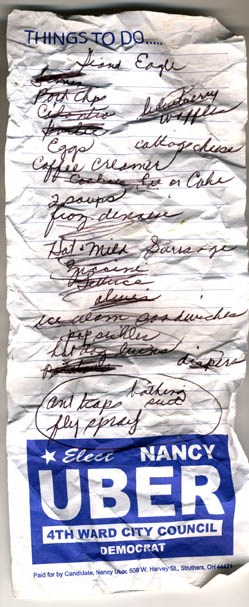 THINGS TO DO.....
Giant Eagle
Pork Chops
Blueberry
Waffles
Eggs cottage cheese
Coffee Creamer
Cookies, Pie or Cake
2 soups
froz dinners
Hot + Mild Sausage
Lettuce
olives
ice cream sandwiches
popsicles
diapers
ant traps bathing suit
fly spray
Elect NANCY
UBER
4TH WARD CITY COUNCIL
DEMOCRAT
Paid for by Candidate, Nancy Uber, 508 W. Harvey St., Struthers, OH 44471